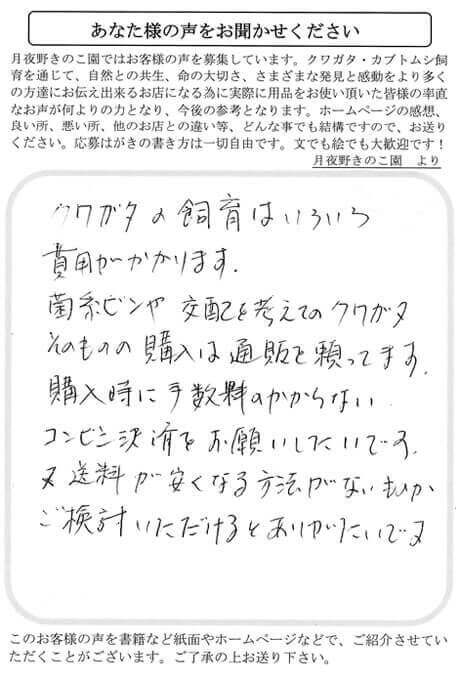 あなた様の声をお聞かせください
月夜野きのこ園ではお客様の声を募集しています。クワガタ・カブトムシ飼
育を通じて、自然との共生、命の大切さ、さまざまな発見と感動をより多く
の方達にお伝え出来るお店になる為に実際に用品をお使い頂いた皆様の率直
なお声が何よりの力となり、今後の参考となります。ホームページの感想、
良い所、悪い所、他のお店との違い等、どんな事でも結構ですので、お送り
ください。応募はがきの書き方は一切自由です。文でも絵でも大歓迎です！
月夜野きのこ園　より
クワガタの飼育はいろいろ
費用がかかります.
菌糸ビンや交配を考えてのクワガタ
そのものの購入は通販を頼ってます.
購入時に手数料のかからない
コンビニ決済をお願いしたいです.
又送料が安くなる方法がないものか
ご検討いただけるとありがたいです
このお客様の声を書籍など紙面やホームページなどで、ご紹介させてい
ただくことがございます。ご了承の上お送り下さい。